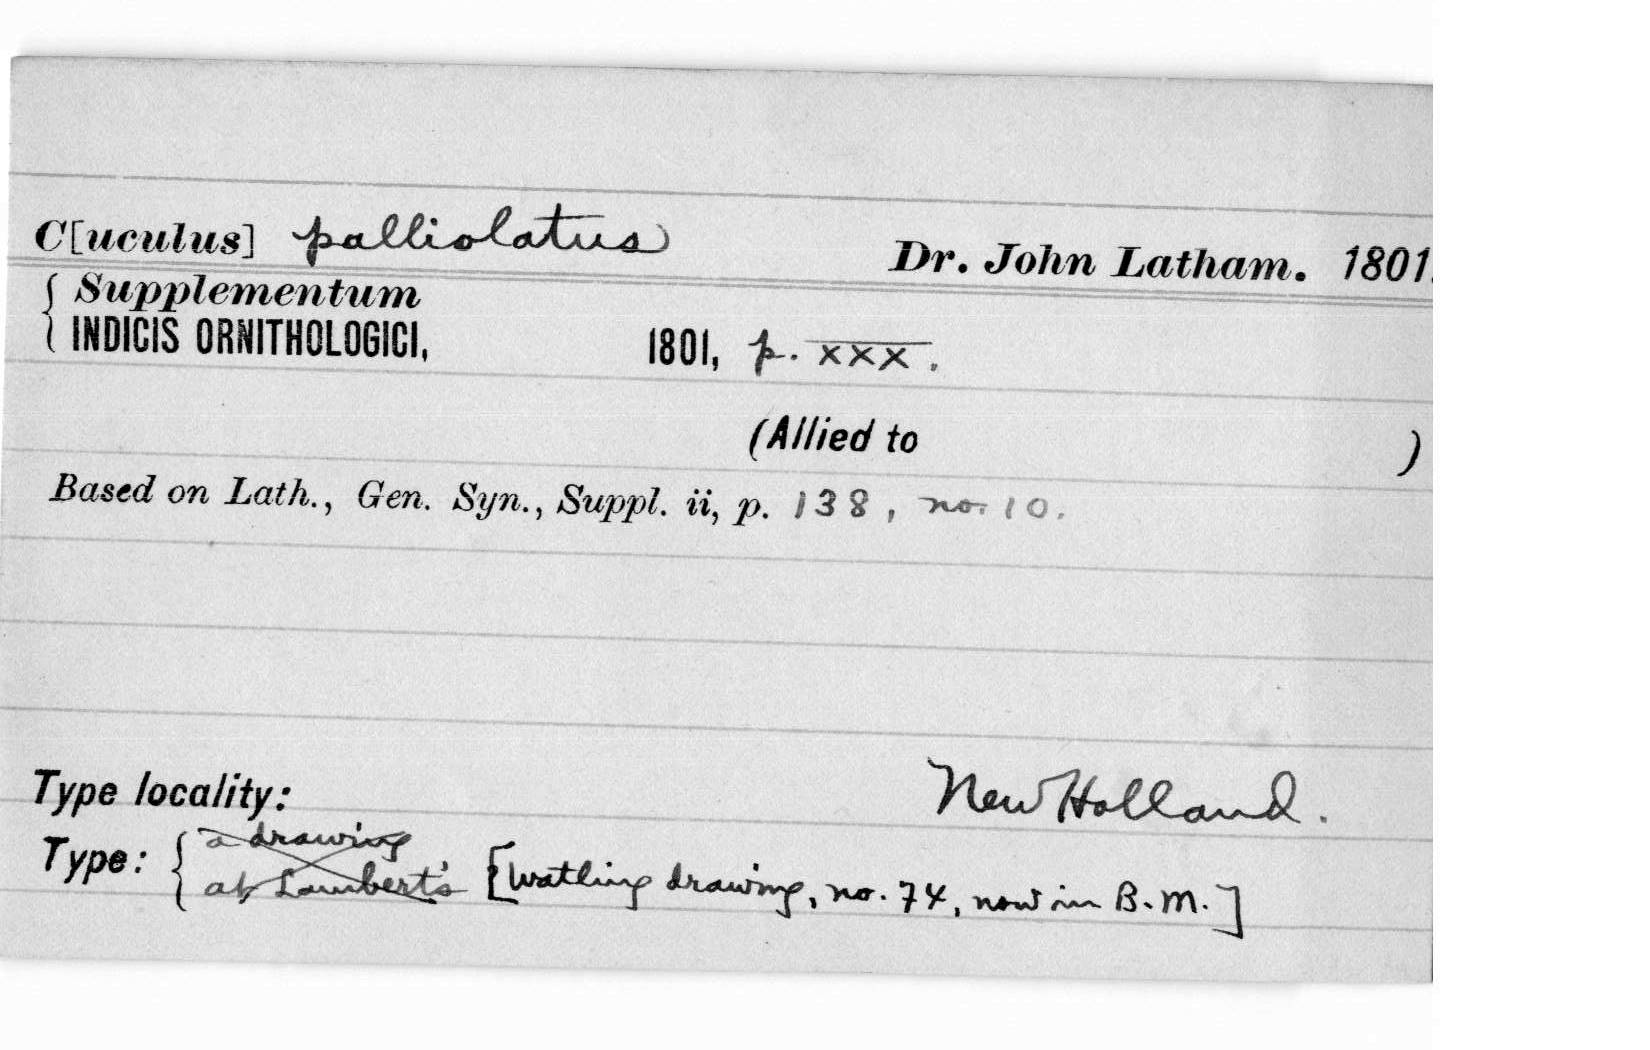 C[uculus] palliolatus Dr. John Latham. 1801.
{ Supplementum
INDICIS ORNITHOLOGICI, 1801, p. xxx.
(Allied to )
Based on Lath., Gen. Syn., Suppl. ii, p. 138, no. 10.
Type locality: New Holland.
Type: { a drawing
at Lambert's [Watling drawing, no. 74, now in B.M.]